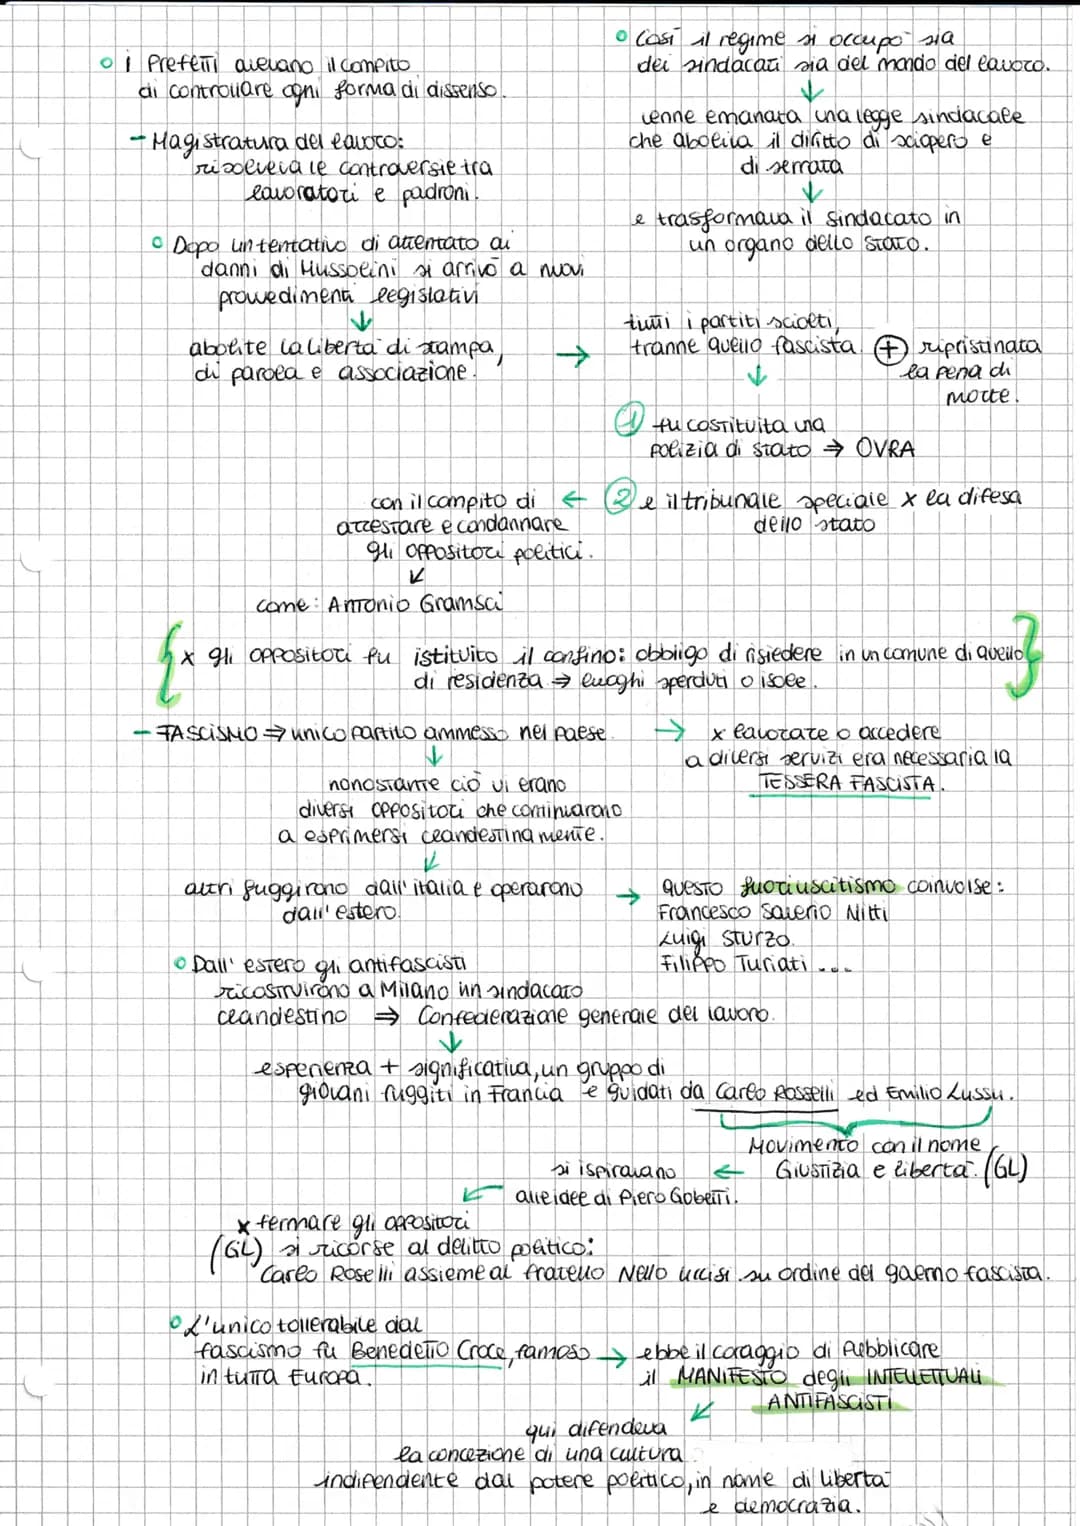 • i Prefetti avevano il compito
di controllare ogni forma di dissenso.
- Magistratura del lavoro:
risolveva le controversie tra
lavoratori e padroni.
• Così il regime si occupò sia
dei sindacati sia del mondo del lavoro.
↓
venne emanata una legge sindacale
che aboliva il diritto di sciopero e
di serrata
↓
e trasformava il sindacato in
un organo dello stato.
• Dopo un tentativo di attentato ai
danni di Mussolini si arrivò a nuovi
provvedimenti legislativi
↓
abolite la libertà di stampa,
di parola e associazione. →
tutti i partiti sciolti,
tranne quello fascista. ⊕ ripristinata
la pena di
morte.
↓
① fu costituita una
polizia di stato → OVRA
② e il tribunale speciale x la difesa
dello stato
← con il compito di
arrestare e condannare
gli oppositori politici.
↙
come: Antonio Gramsci
{ x gli oppositori fu istituito il confino: obbligo di risiedere in un comune di quello }
di residenza ⇒ luoghi sperduti o isole.
- FASCISMO ⇒ unico partito ammesso nel paese. →
x lavorare o accedere
a diversi servizi era necessaria la
TESSERA FASCISTA.
↓
nonostante ciò vi erano
diversi oppositori che continuarono
a esprimersi clandestinamente.
↙
altri fuggirono dall'italia e operarono
dall'estero. →
questo fuoriuscitismo coinvolse:
Francesco Saverio Nitti
Luigi Sturzo.
Filippo Turiati ...
• Dall'estero gli antifascisti
ricostruirono a Milano un sindacato
clandestino ⇒ Confederazione generale del lavoro.
↓
esperienza + significativa, un gruppo di
giovani fuggiti in Francia e guidati da Carlo Rosselli ed Emilio Lussu.
Movimento con il nome
Giustizia e libertà. (GL)
← si ispiravano
alle idee di Piero Gobetti.
↙
x fermare gli oppositori
(GL) si ricorse al delitto politico:
Carlo Roselli assieme al fratello Nello uccisi su ordine del gaerno fascista.
• L'unico tollerabile dal
fascismo fu Benedetto Croce, famoso →
in tutta Europa.
ebbe il coraggio di Pubblicare
il MANIFESTO degli INTELLETTUALI
ANTIFASCISTI
↙
qui difendeva
la concezione di una cultura
indipendente dal potere politico, in nome di libertà
e democrazia.